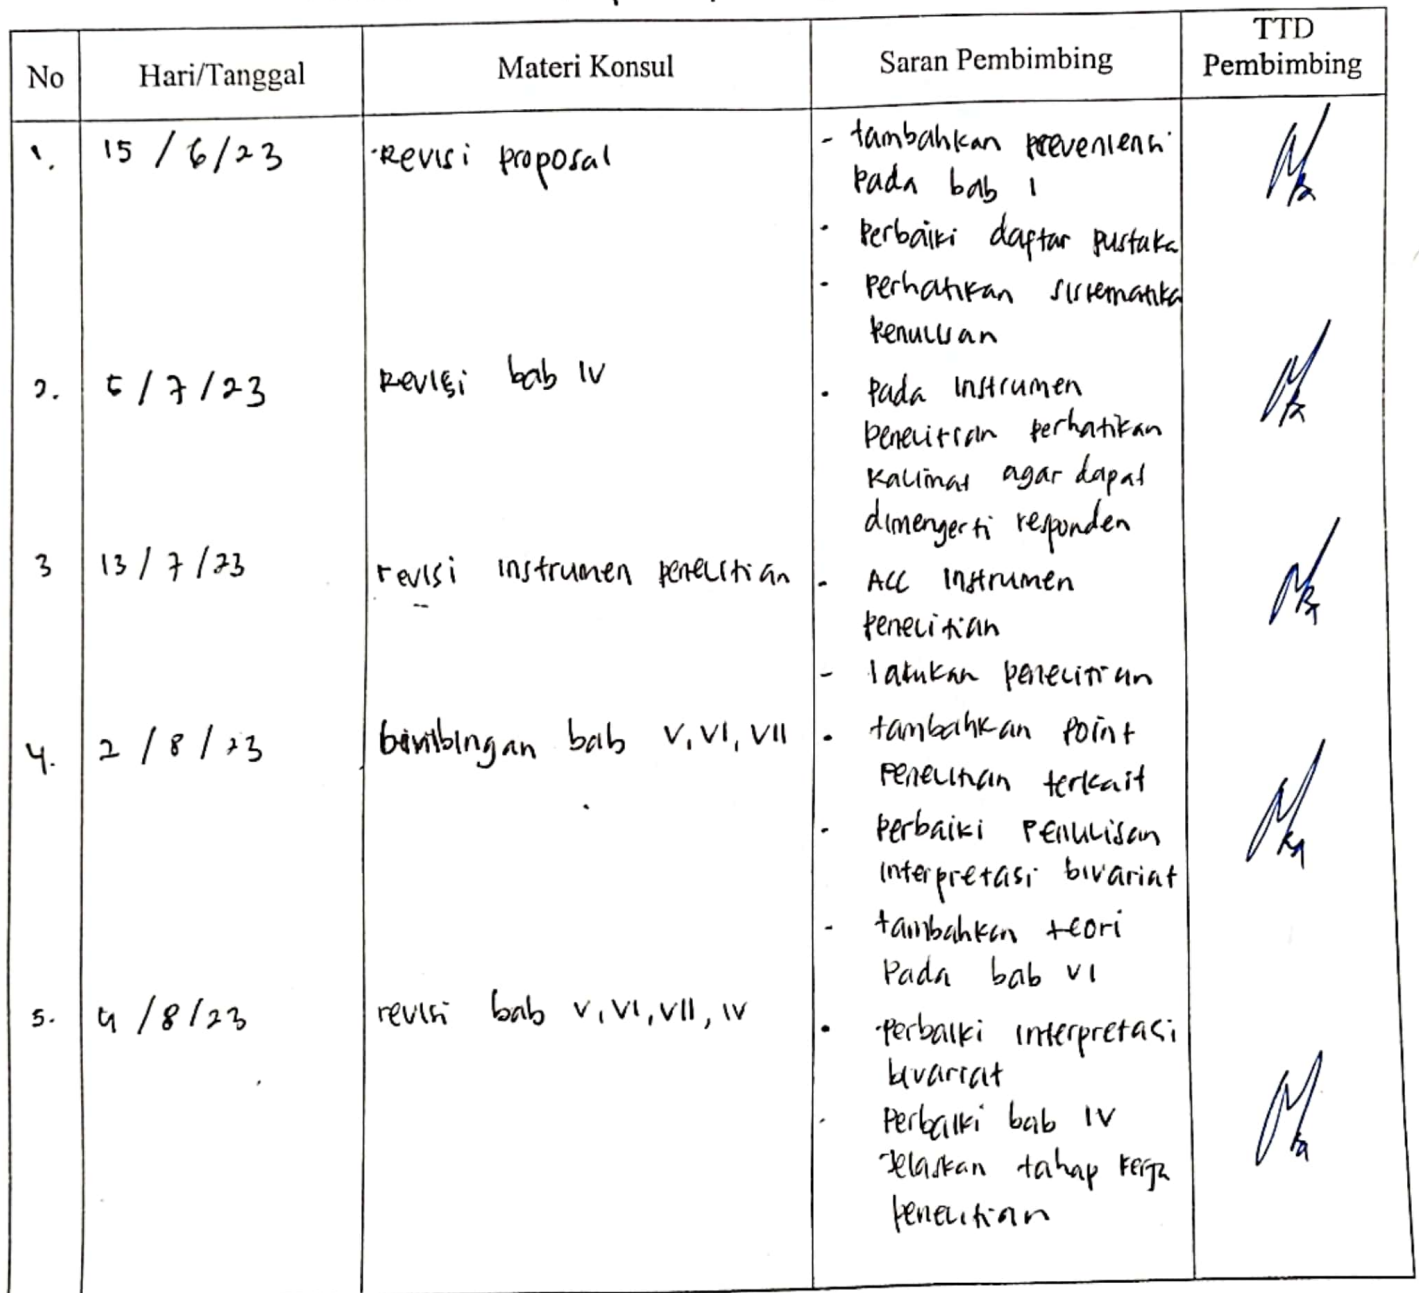 No Hari/Tanggal Materi Konsul Saran Pembimbing TTD
Pembimbing
1. 15 / 6 / 23 Revisi proposal - tambahkan prevenlensi
pada bab 1
- perbaiki daftar pustaka
- perhatikan sistematika
penulisan
2. 5 / 7 / 23 Revisi bab IV - pada instrumen
penelitian perhatikan
kalimat agar dapat
dimengerti responden
3 13 / 7 / 23 revisi instrumen penelitian - ACC instrumen
penelitian
- lakukan penelitian
4. 2 / 8 / 23 bimbingan bab V, VI, VII - tambahkan point
penelitian terkait
- perbaiki penulisan
interpretasi bivariat
- tambahkan teori
pada bab VI
5. 4 / 8 / 23 revisi bab V, VI, VII, IV - perbaiki interpretasi
bivariat
- perbaiki bab IV
jelaskan tahap kerja
penelitian